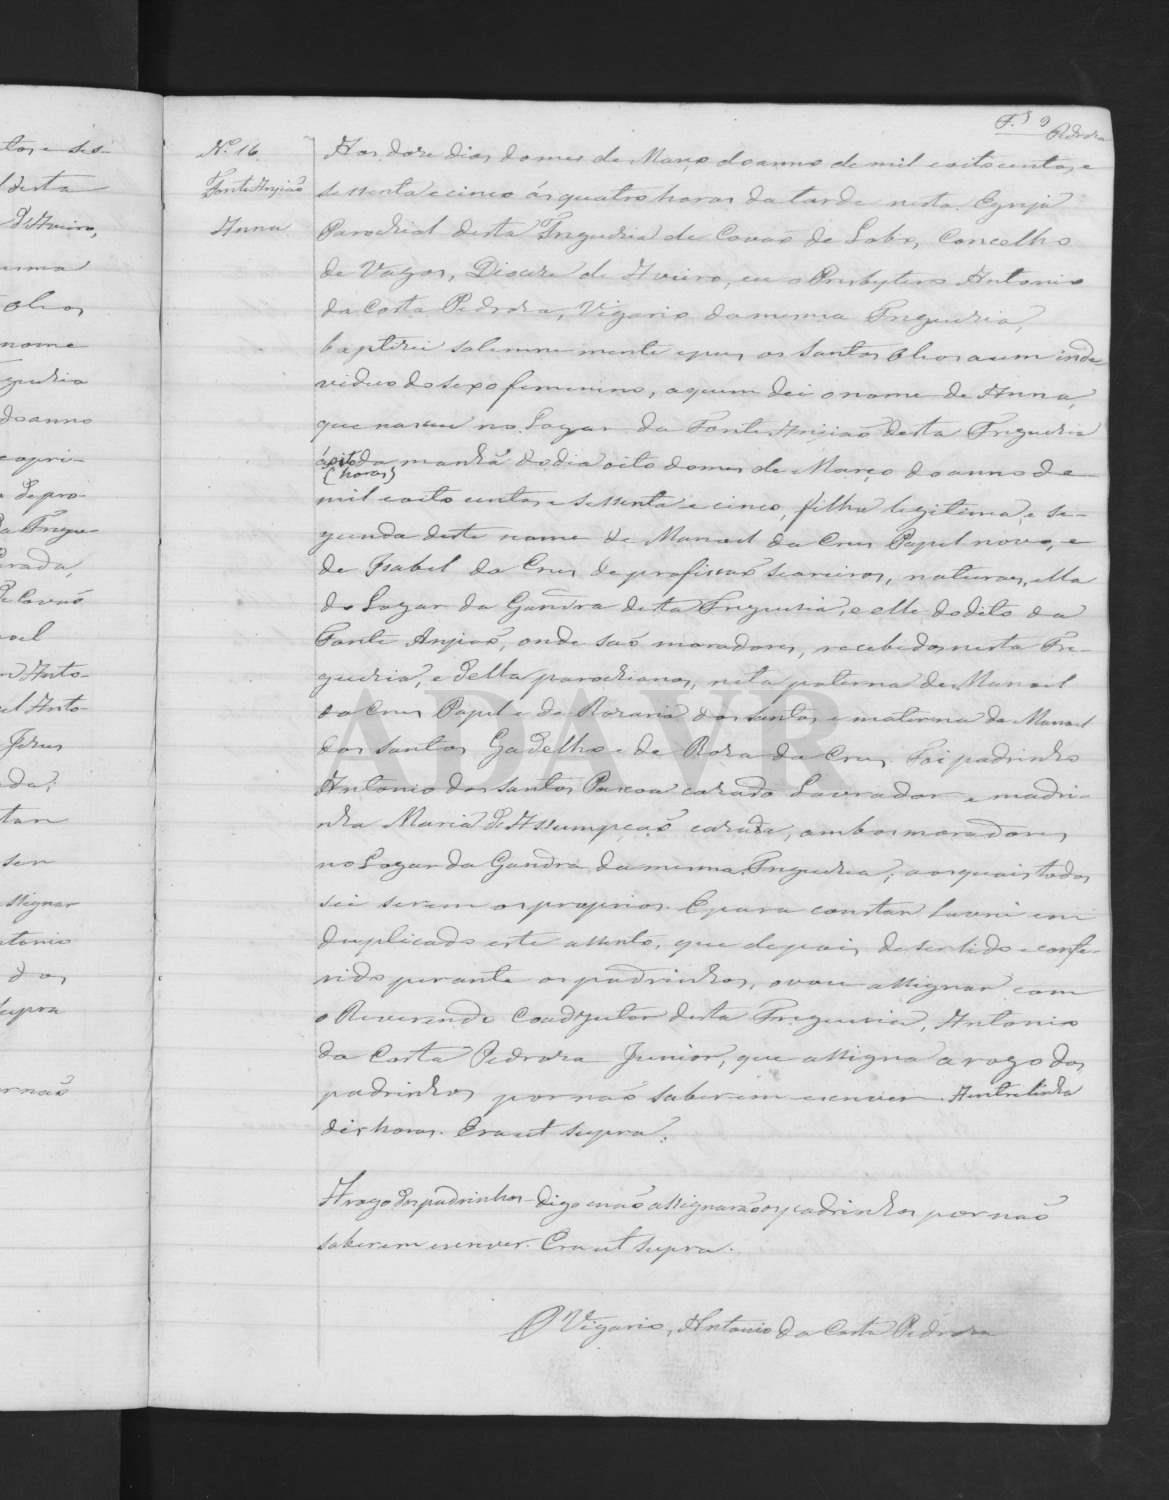 F.s 9 Pedroza
N.º 16
Fonte Anjião
Anna
Aos doze dias do mes de Março do anno de mil e oito centos, e
sessenta e cinco ás quatro horas da tarde nesta Egreja
Parochial desta Freguezia de Covão de Lobo, Concelho
de Vagos, Diocese de Aveiro, eu o Presbytero Antonio
da Costa Pedroza, Vigario da mesma Freguezia,
baptizei solemnemente e pus os Santos Oleos a um inde-
viduo do sexo femenino, a quem dei o nome de Anna,
que nasceu no Lugar da Fonte Anjião desta Freguezia
ás oito da manhã do dia oito do mes de Março do anno de
(horas)
mil e oito centos e sessenta e cinco, filha legitima, e se-
gunda deste nome de Manoel da Crus Papel novo, e
de Isabel da Crus de profissão seareiros, naturaes, ella
do Lugar da Gandra desta Freguezia, e elle do dito da
Fonte Anjião, onde são moradores, recebidos nesta Fre-
guezia, e della parochianos, neta paterna de Manoel
da Crus Papel e de Rozaria dos Santos e materna de Manoel
dos Santos Gadelho e de Roza da Crus. Foi padrinho
Antonio dos Santos Pascoa cazado Lavrador e madri-
nha Maria de Assumpção cazada, ambos moradores
no Lugar da Gandra da mesma Freguezia, aos quais todos
sei serem os proprios. E para constar lavrei em
duplicado este assento, que depois de ser lido e confe-
rido perante os padrinhos, o vou assignar com
o Reverendo Coadjutor desta Freguezia, Antonio
da Costa Pedroza Junior, que assigna a rogo dos
padrinhos por não saberem escrever. A entrelinha
diz horas. Era ut supra.
A rogo dos padrinhos digo e não assignarão os padrinhos por não
saberem escrever. Era ut supra.
O Vigario, Antonio da Costa Pedroza
ADAVR